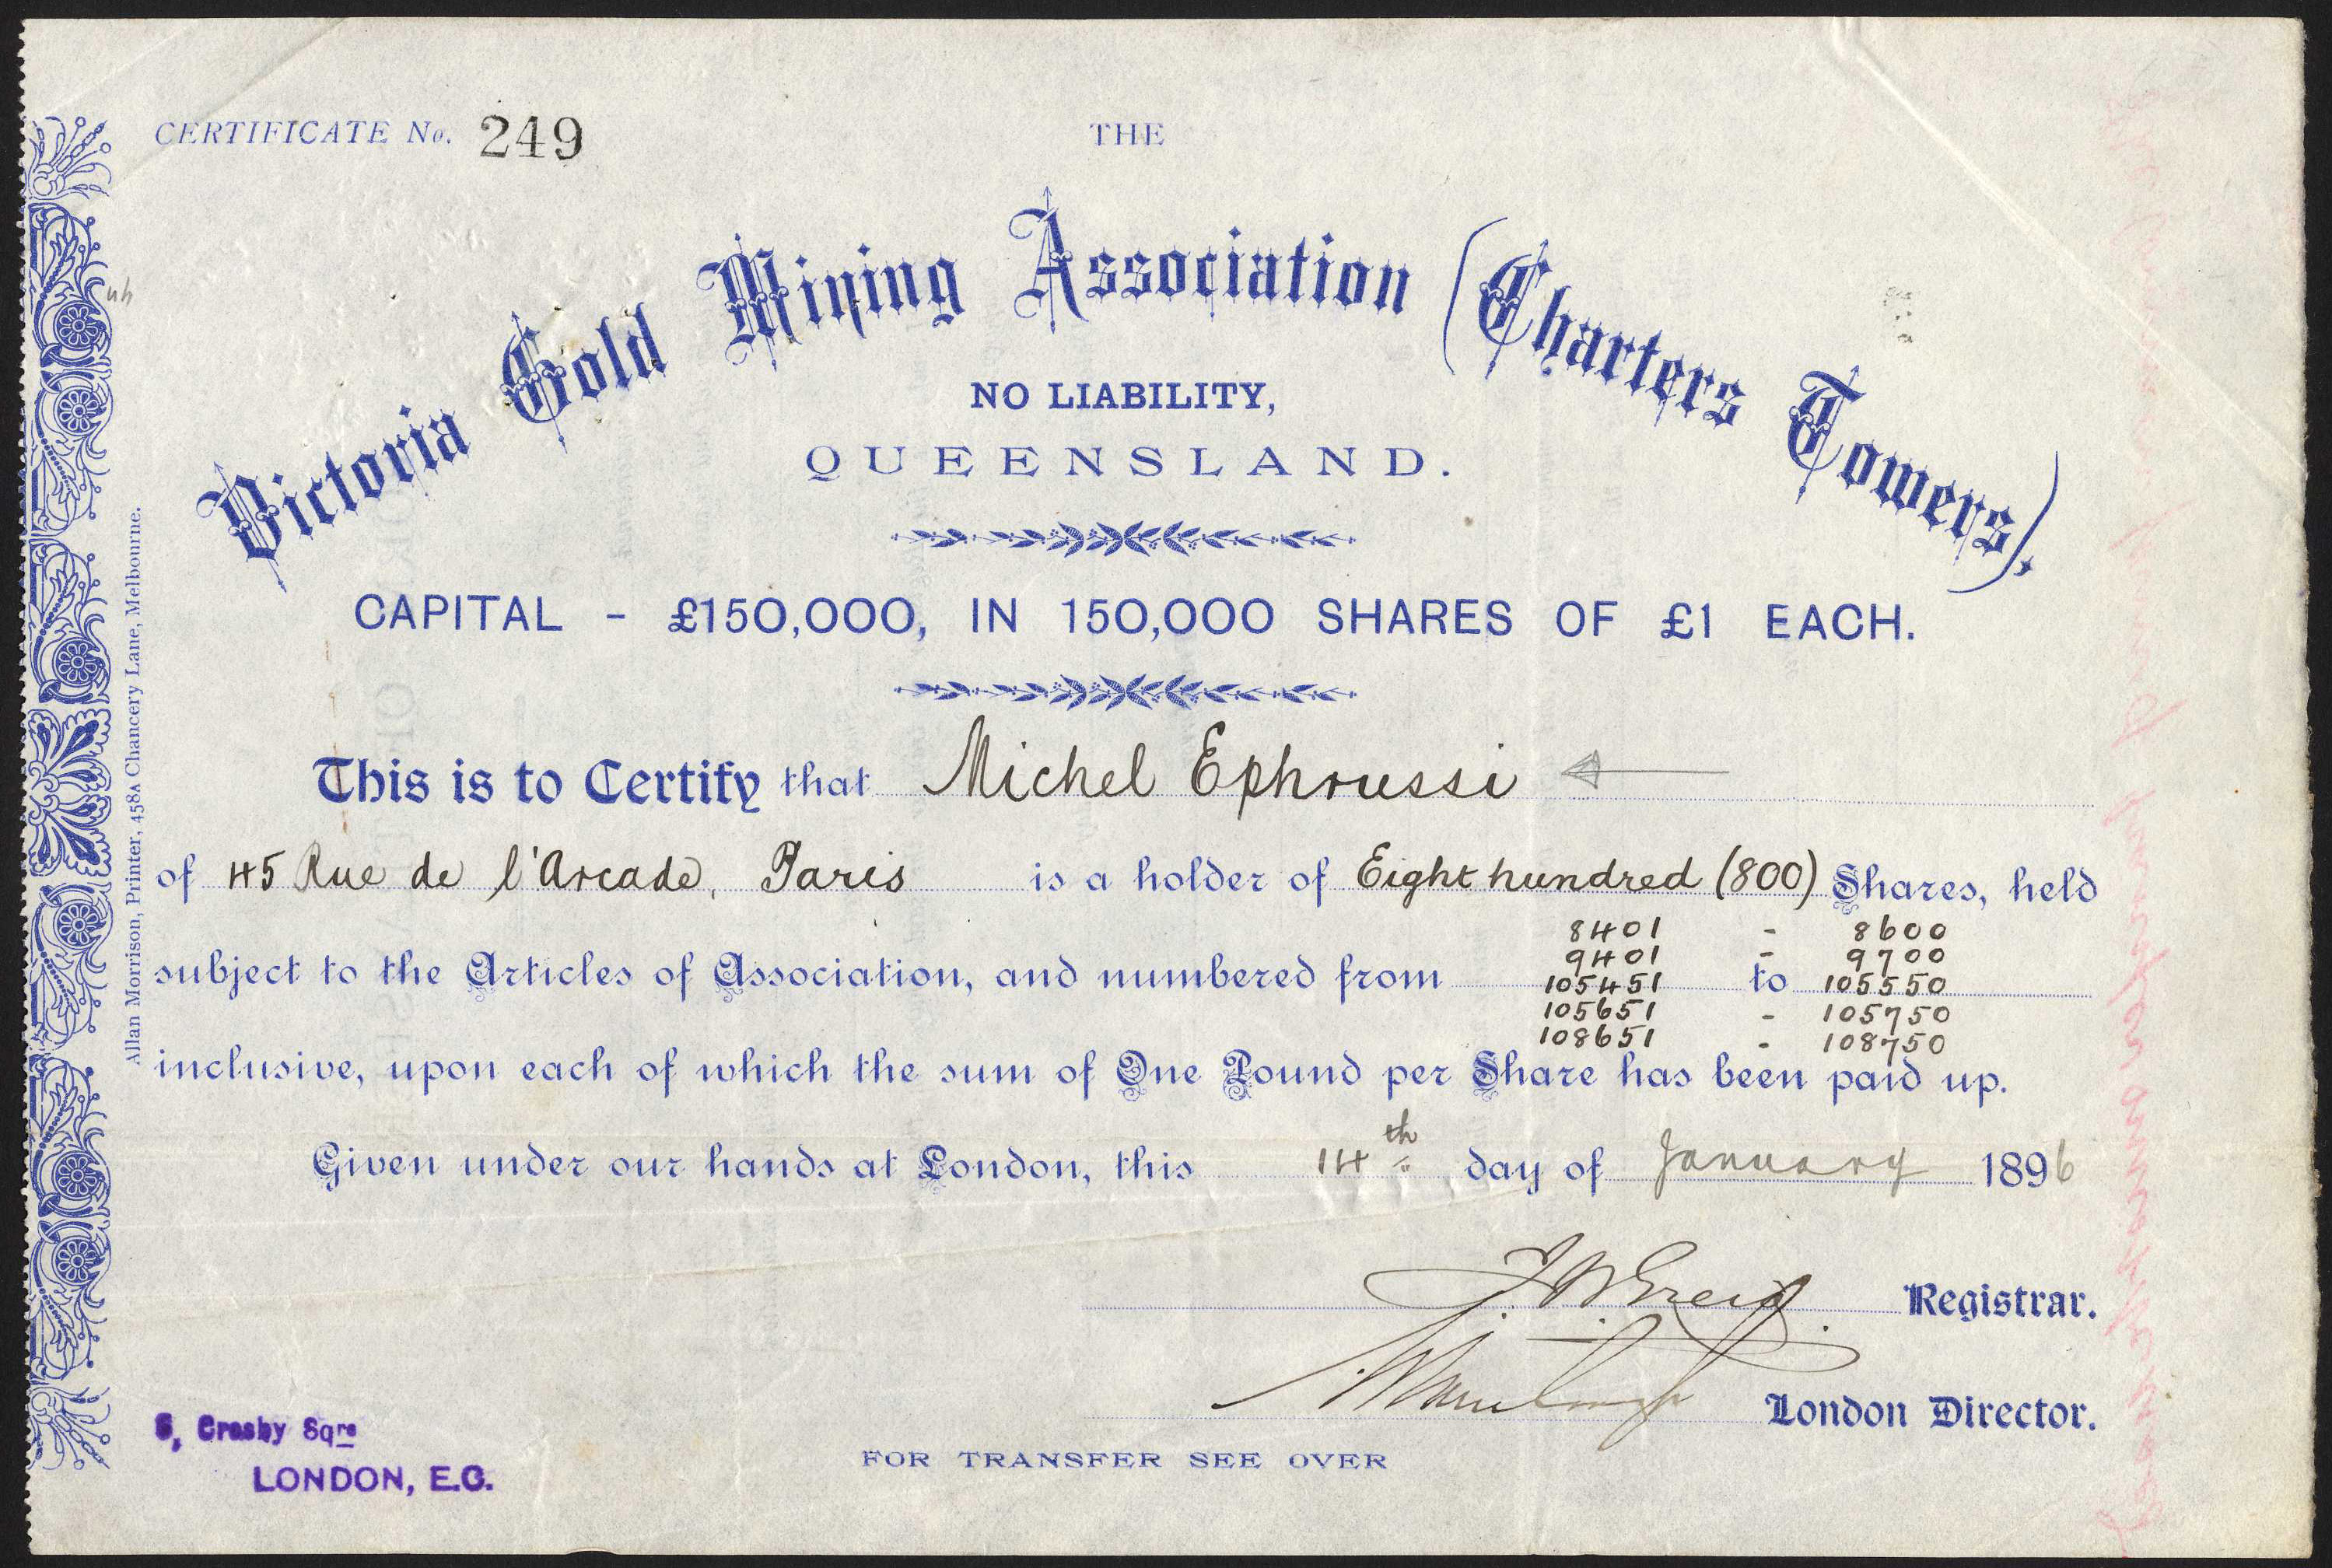 CERTIFICATE No. 249
THE
Victoria Gold Mining Association (Charters Towers).
NO LIABILITY,
QUEENSLAND.
CAPITAL - £150,000, IN 150,000 SHARES OF £1 EACH.
This is to Certify that Michel Ephrussi
of 45 Rue de l'Arcade, Paris is a holder of Eight hundred (800) Shares, held
8401 - 8600
9401 - 9700
subject to the Articles of Association, and numbered from 105451 to 105550
105651 - 105750
108651 - 108750
inclusive, upon each of which the sum of One Pound per Share has been paid up.
Given under our hands at London, this 14th day of January 1896
Registrar.
London Director.
FOR TRANSFER SEE OVER
6, Crosby Sqre
LONDON, E.C.
Allan Morrison, Printer, 458A Chancery Lane, Melbourne.